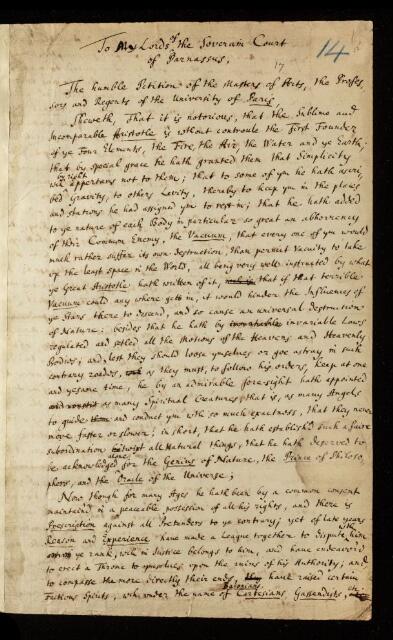 To My Lords of the Soverain Court
of Parnassus,
14
17
The humble Petition of the Masters of Arts, the Profes-
sors and Regents of the University of Paris,
Sheweth, That it is notorious, that the Sublime and
Incomparable Aristotle is without controule the First Founder
of ye Four Elements, the Fire, the Air, the Water and ye Earth;
that by special grace he hath granted them that Simplicity
wch of right appertains not to them; that to some of you he hath ascri-
bed gravity, to others Levity, thereby to keep you in the places
and stations he had assigned you to rest in; that he hath added
to ye nature of each Body in particular so great an abhorrency
of their Common Enemy, the Vacuum, that every one of you would
much rather suffer its own destruction, than permit Vacuity to take
up the least space in the World, all being very well instructed by what
ye Great Aristotle hath written of it, that if that terrible
Vacuum could any where get in, it would hinder the Influences of
ye Stars there to descend, and so cause an universal destruction
of Nature: besides that he hath by invariable Laws
regulated and setled all the Motions of the Heavens and Heavenly
Bodies; and, lest they should loose ymselves or goe astray in such
contrary roades, as they must, to follow his orders, keep at one
and yesame time, he by an admirable foresight hath appointed
as many Spiritual Creatures, that is, as many Angels
to guide them and conduct you with so much exactness, that they never
move faster or slower; in short, that he hath establish'd such a faire
subordination betwixt all Natural things, that he hath deserved to
be acknowledged alone for the Genius of Nature, the Prince of Philoso-
phers, and the Oracle of the Universe;
Now though for many Ages he hath been by a common consent
maintain'd in a peaceable possession of all his rights, and there is
Prescription against all Pretenders to ye contrary; yet of late years
Reason and Experience have made a League together to dispute him
ye rank, wch in Justice belongs to him, and have endeavor'd
to erect a Throne to ymselves upon the ruins of his Authority; and
to compasse the more directly their ends, have raised certain
Factious Spirits, who under the name of Cartesians, Gassendists,